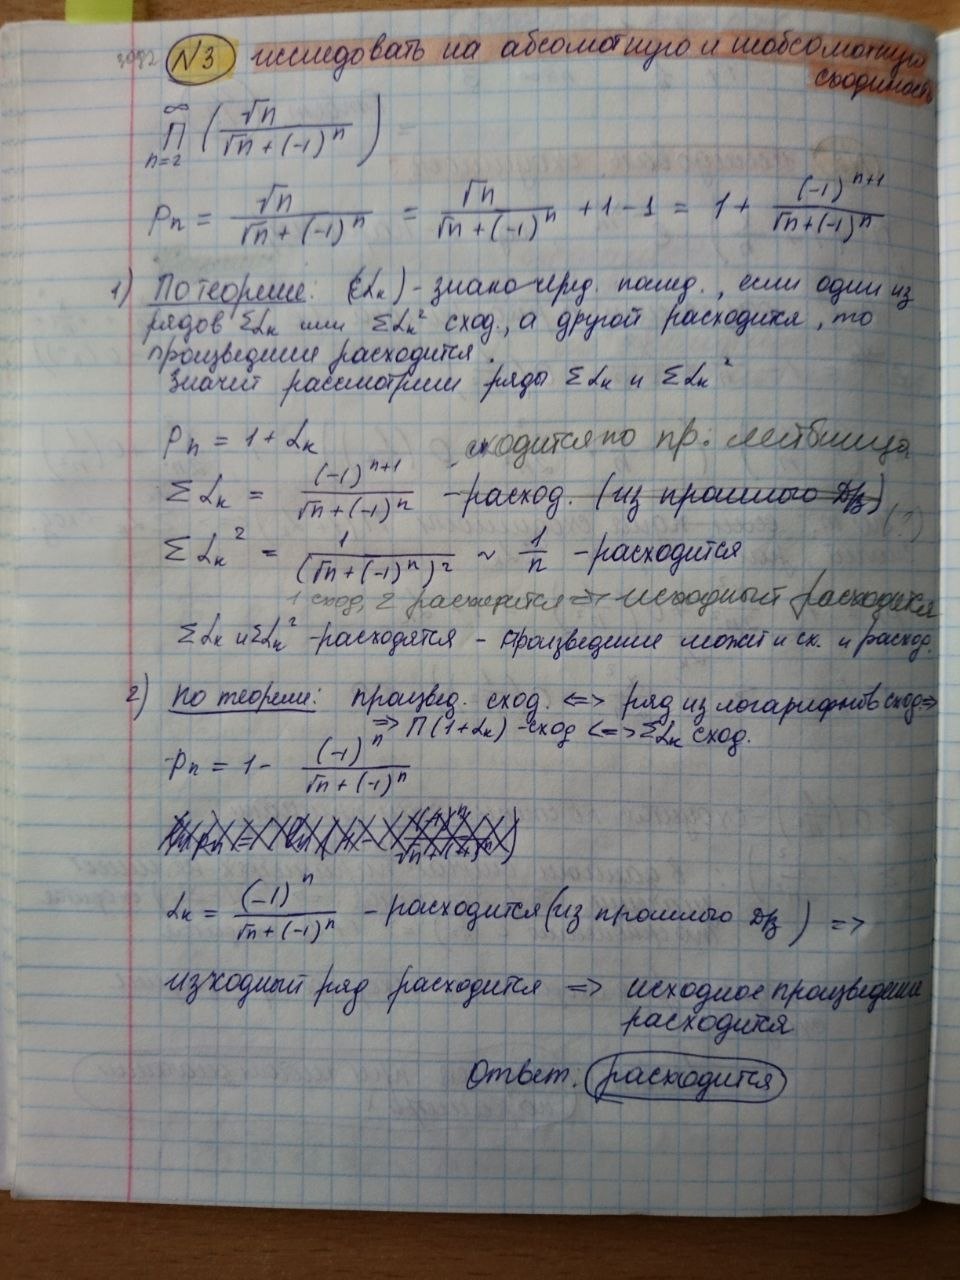 3092 №3 исследовать на абсолютную и неабсолютную
сходимость
∞ П n=2 ( √n / (√n + (-1)^n) )
Pn = √n / (√n + (-1)^n) = √n / (√n + (-1)^n) + 1 - 1 = 1 + (-1)^(n+1) / (√n + (-1)^n)
1) По теореме: (αn) - знакочеред. послед., если один из
рядов Σαn или Σαn² сход., а другой расходится, то
произведение расходится.
Значит рассмотрим ряды Σαn и Σαn²
Pn = 1 + αn сходится по пр. лейбница
Σαn = (-1)^(n+1) / (√n + (-1)^n) - расход. (из прошлого Дз) (?)
Σαn² = 1 / (√n + (-1)^n)² ~ 1/n - расходится
1 сход, 2 расходится => исходный расходится
Σαn и Σαn² - расходятся - произведение может и сх. и расход.
2) По теореме: произвед. сход. <=> ряд из логарифмов сход =>
=> П(1+αn) - сход <=> Σαn сход.
Pn = 1 - (-1)^n / (√n + (-1)^n)
αn = (-1)^n / (√n + (-1)^n) - расходится (из прошлого Дз) =>
изходный ряд расходится => исходное произведение
расходится
Ответ: расходится